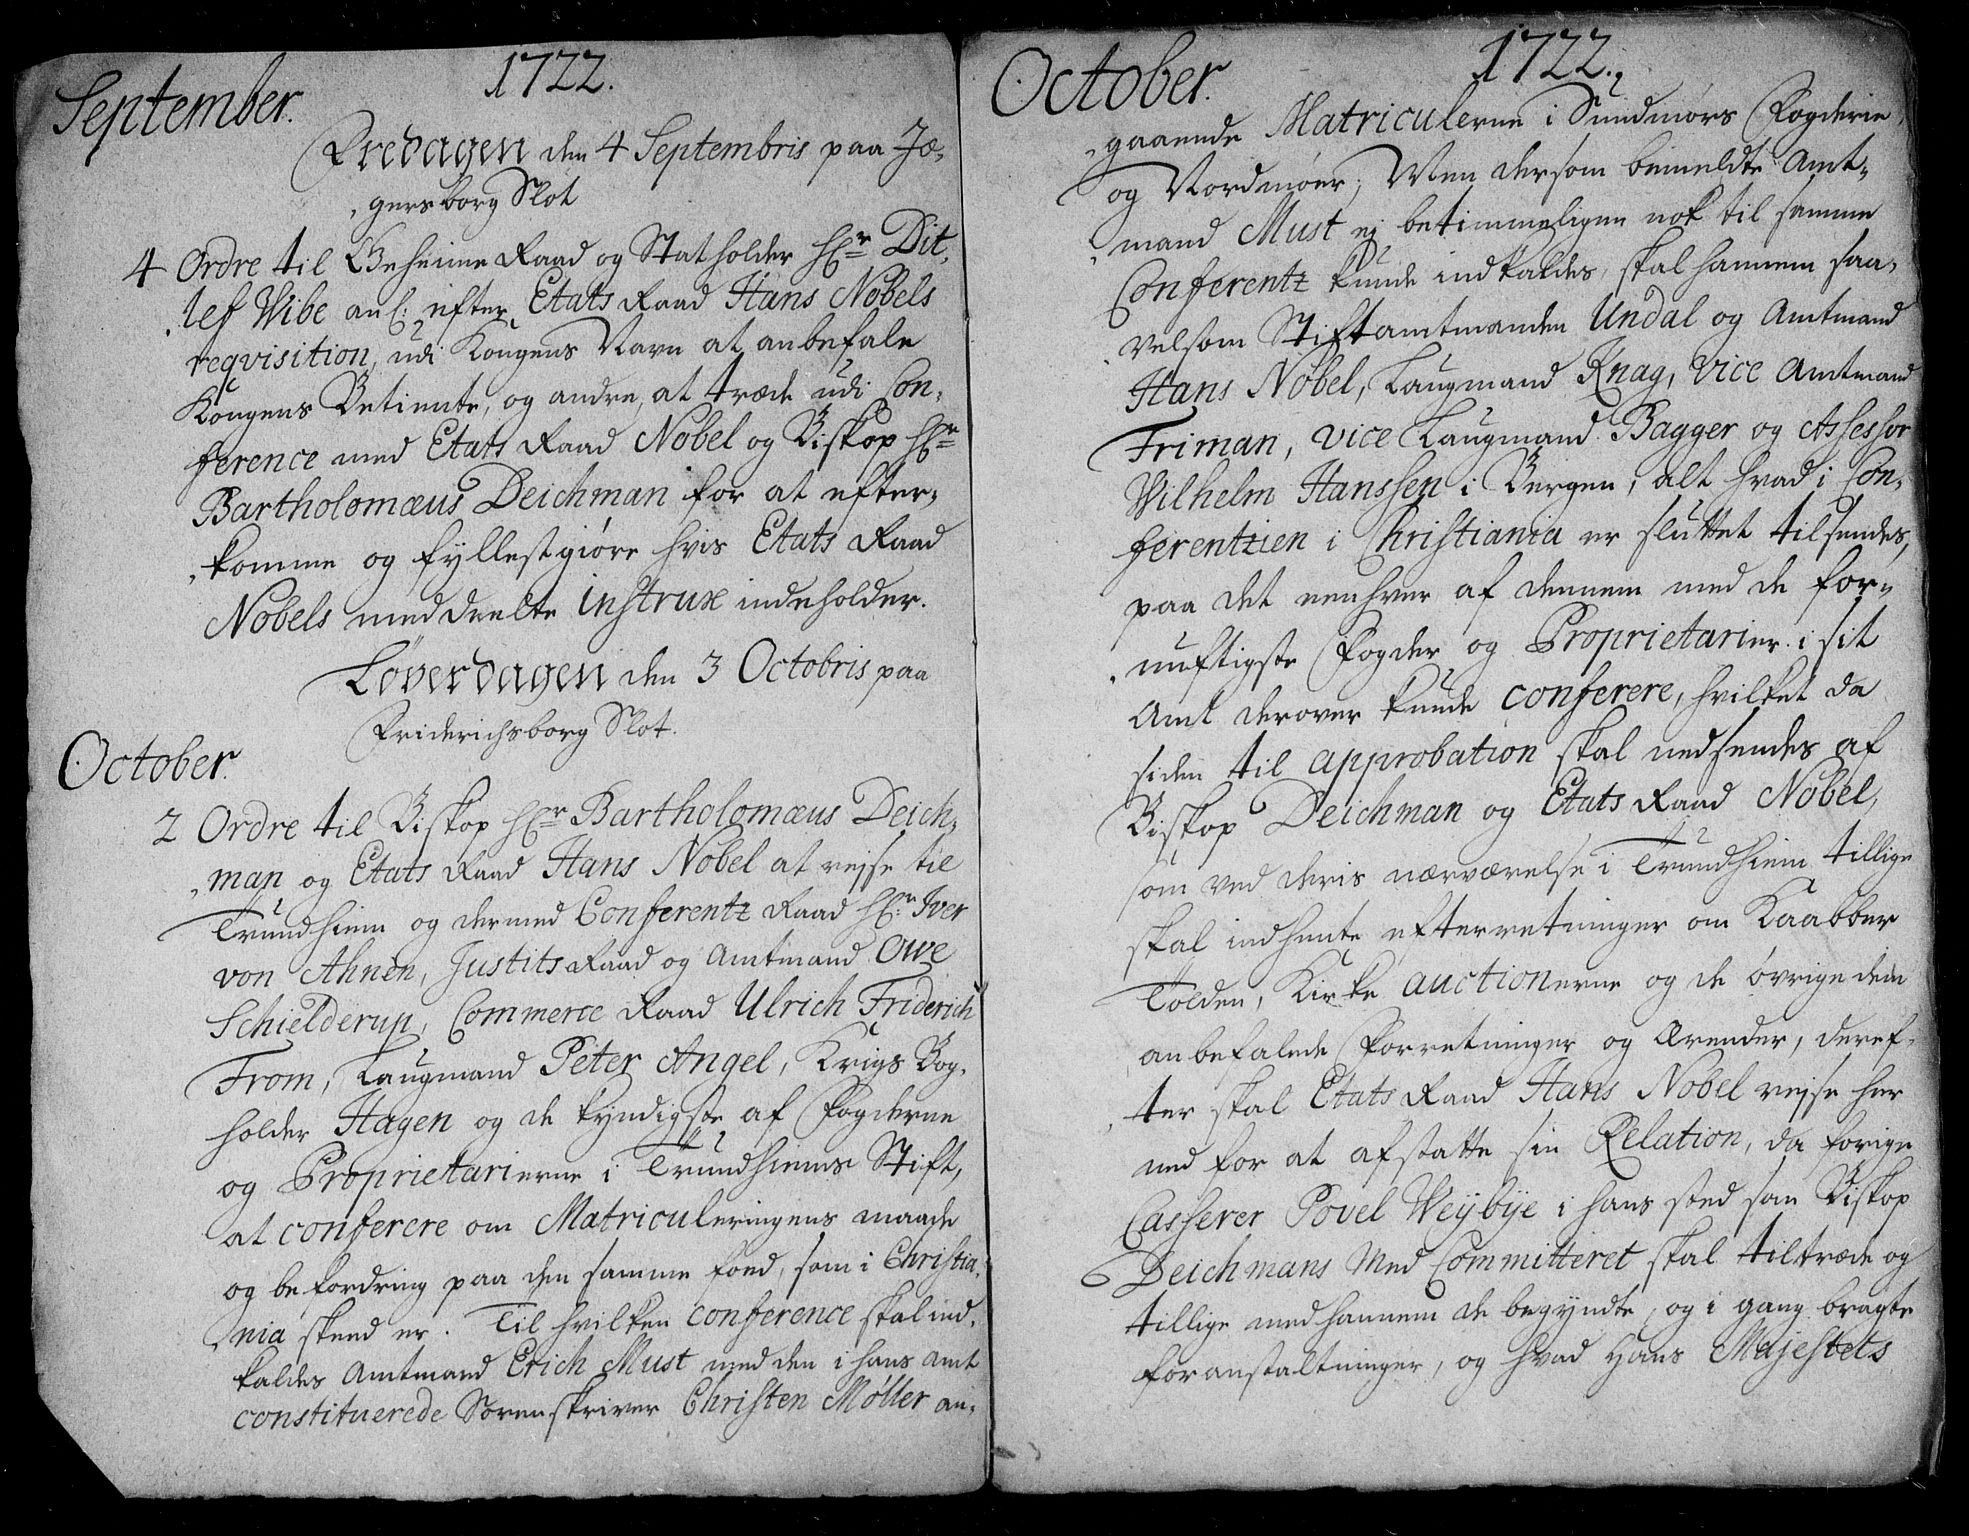 1722.
September.
Fredagen den 4 Septembris paa Jæ-
gersborg Slot
4 Ordre til Geheime Raad og Statholder Hr Dit-
lef Wibe anl: efter Etats Raad Hans Nobels
reqvisition, udi Kongens Navn at anbefale
Kongens Betiente, og andre, at træde udi Con-
ference med Etats Raad Nobel og Biskop Hr
Bartholomæus Deichman for at efter-
komme og fyllestgiøre hvis Etats Raad
Nobels meddeelte instrux indeholder.
Løverdagen den 3 Octobris paa
Friderichsborg Slot.
October.
2 Ordre til Biskop Hr Bartholomæus Deich-
man og Etats Raad Hans Nobel at rejse til
Trundhiem og dermed Conferentz Raad Hr. Iver
von Ahnen, Justits Raad og Amtmand Owe
Schielderup, Commerce Raad Ulrich Friderich
From, Laugmand Peter Angel, Krigs Bog-
holder Hagen og de kyndigste af Fogderne
og Proprietarierne i Trundhiems Stift,
at conferere om Matriculeringens maade
og befordring paa den samme foed, som i Christia-
nia skeed er. Til hvilken conference skal ind-
kaldes Amtmand Erich Must med den i hans Amt
constituerede Sorenskriver Christen Møller an-
October.
1722.
gaaende Matriculerne i Sundmørs Fogderie,
og Nordmøer; Men dersom bemeldte Amt-
mand Must ej betimmeligen nok til samme
Conferentz kunde indkaldes, skal hannem saa-
velsom Stiftamtmanden Undal og Amtmand
Hans Nobel, Laugmand Knag, Vice Amtmand
Friman, Vice Laugmand Bagger og Assessor
Wilhelm Hanssen i Bergen, alt hvad i Con-
ferentzien i Christiania er sluttet tilsendes,
paa det eenhver af dennem med de for-
nuftigste Fogder og Proprietarier i sit
Amt derover kunde conferere, hvilket da
siden til approbation skal nedsendes af
Biskop Deichman og Etats Raad Nobel,
som ved deris nærværelse i Trundhiem tillige
skal indhente efterretninger om Kaabber
Tolden, Kirke auctionerne og de øvrige dem
anbefalede Forretninger og Ærender, deref-
ter skal Etats Raad Hans Nobel rejse her
ned for at afstatte sin Relation, da forige
Casserer Povel Weybye i hans sted som Biskop
Deichmans Med Committeret skal tiltræde og
tillige med hannem de begyndte, og i gang bragte
foranstaltninger, og hvad Hans Majestets